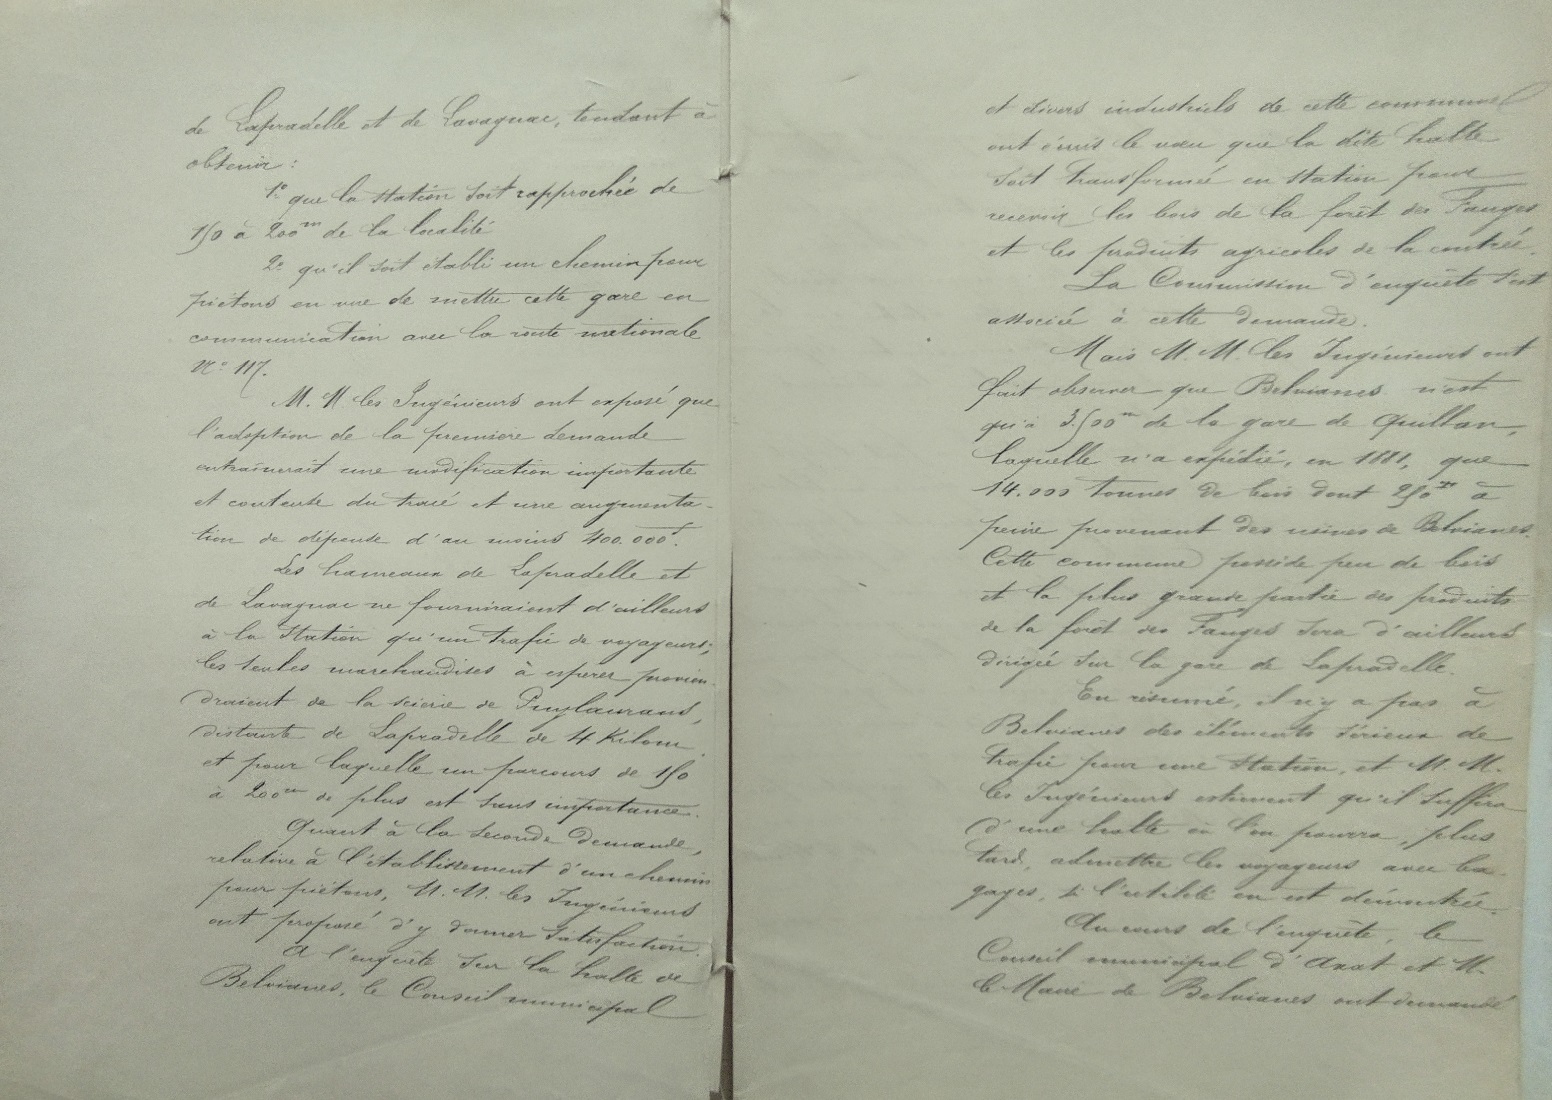 de Lapradelle et de Lavagnac, tendant à
obtenir :
1° que la station soit rapprochée de
150 à 200m de la localité
2° qu'il soit établi un chemin pour
piétons en vue de mettre cette gare en
communication avec la route nationale
N° 117.
M. M les Ingénieurs ont exposé que
l'adoption de la première demande
entraînerait une modification importante
et couteuse du tracé et une augmenta-
tion de dépense d'au moins 400.000f.
Les hameaux de Lapradelle et
de Lavagnac ne fourniraient d'ailleurs
à la station qu'un trafic de voyageurs ;
les seules marchandises à espérer provien-
draient de la scierie de Puylaurens,
distante de Lapradelle de 4 Kilom.
et pour laquelle un parcours de 150
à 200m de plus est sans importance.
Quant à la seconde demande,
relative à l'établissement d'un chemin
pour piétons, M. M. les Ingénieurs
ont proposé d'y donner satisfaction.
A l'enquête sur la halte de
Belvianes, le Conseil municipal
et divers industriels de cette commune
ont émis le vœu que la dite halte
soit transformée en station pour
recevoir les bois de la forêt des Fanges
et les produits agricoles de la contrée.
La Commission d'enquête s'est
associée à cette demande.
Mais M. M. les Ingénieurs ont
fait observer que Belvianes n'est
qu'à 3.500m de la gare de Quillan,
laquelle n'a expédié, en 1881, que
14.000 tonnes de bois dont 250 à
peine provenant des usines de Belvianes.
Cette commune possède peu de bois
et la plus grande partie des produits
de la forêt des Fanges sera d'ailleurs
dirigée sur la gare de Lapradelle.
En résumé, il n'y a pas à
Belvianes des éléments sérieux de
trafic pour une station, et M. M.
les Ingénieurs estiment qu'il suffira
d'une halte où l'on pourra, plus
tard, admettre les voyageurs avec ba-
gages, si l'utilité en est démontrée.
Au cours de l'enquête, le
Conseil municipal d'Axat et M.
le Maire de Belvianes ont demandé